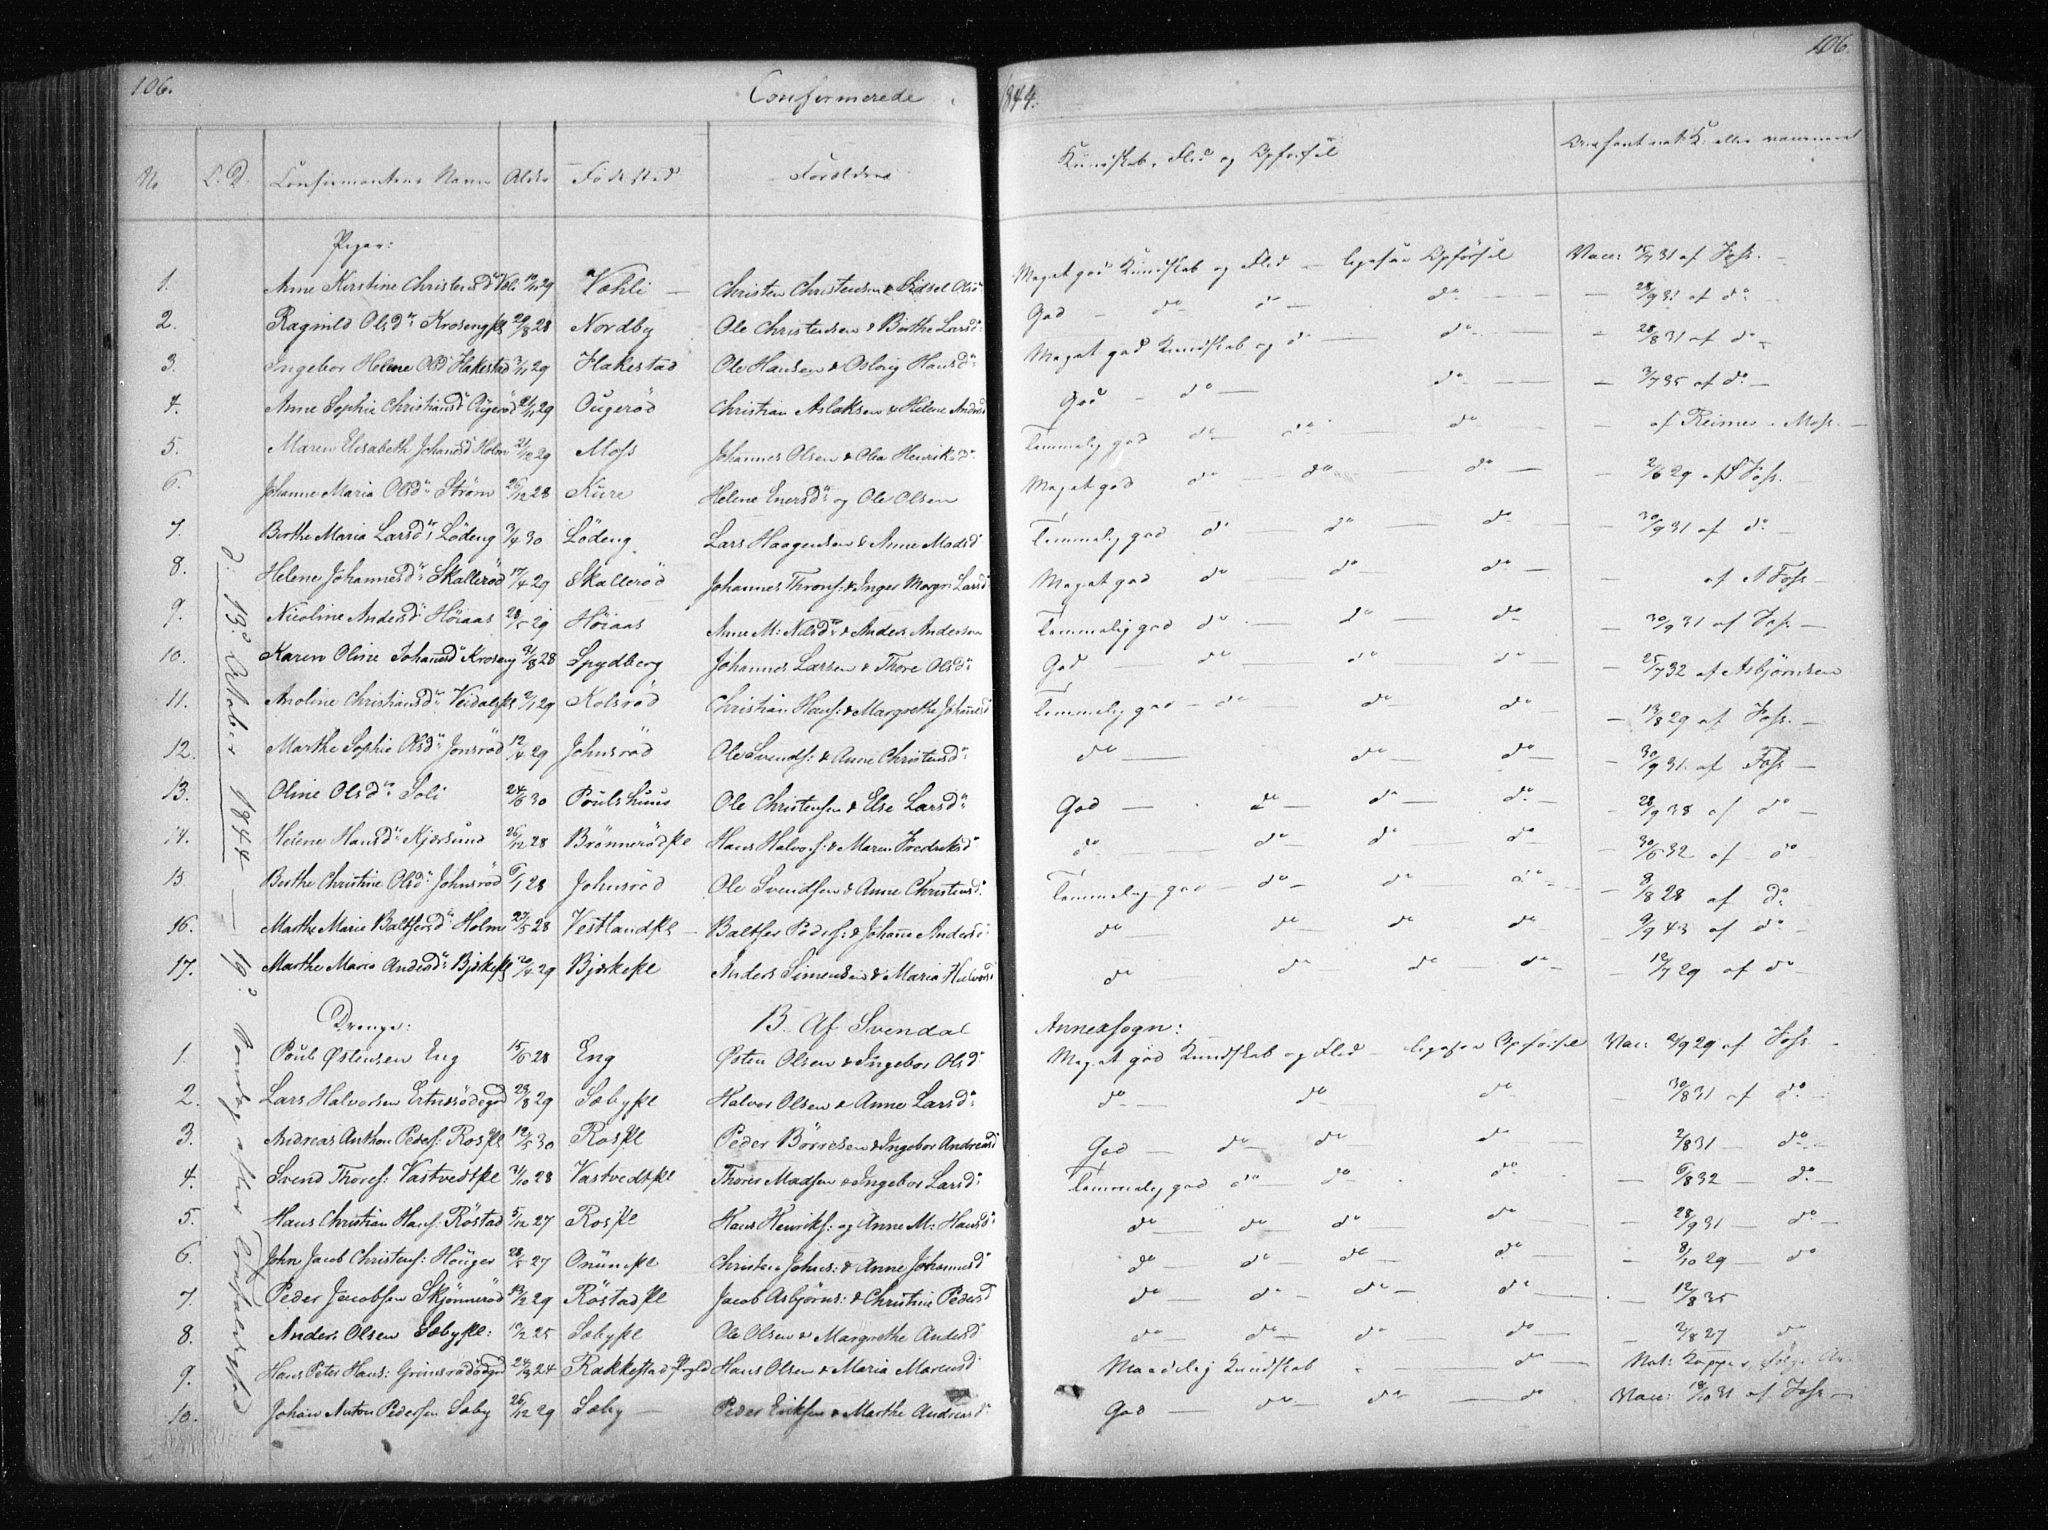 106. Confirmerede 1844. 106.
No C.D. Confirmantens Navn Alder Födested Forældrene Kundskab, Flid og Opførsel
d: 13de October 1844 — 19de Søndag efter Trinitatis
Piger:
1. Anne Kirstine Christensd Vahli — Christen Christensen & Sidsel Olsd Meget god Kundskab og Flid — ligesaa Opförsel Vac: 31 af Foss. —
2. Ragnild Olsdr Kroseng 29/8 28 Nordby Ole Christensen & Berthe Larsd: God — do do — do — — 28/9 31 af do
3. Ingebor Helene Olsd Hakestad 3/11 29 Hakestad Ole Hansen & Aslaug Hansdr Meget god Kundskab og d — do — — 28/8 31 af do —
4. Anne Sophie Christiansd Ougeröd 21/11 29 Ougeröd Christian Aslaksen & Helene Andersd God — do — do — — 3/7 35 af do —
5. Maren Elisabeth Johansd Holm 21/12 29 Moss Johannes Olsen & Olea Henriksd: Temmelig god do — do do — — af Reimers Moss. —
6. Johanne Maria Olsdr Ström 26/12 28 Kure Helene Enersdr og Ole Olsen Meget god do — do — do — — 2/6 29 af Foss. —
7. Berthe Maria Larsdr Lödeng 3/4 30 Lödeng Lars Haagensen & Anne Madsd Temmelig god do — do — do — — 30/9 31 af do
8. Helene Johannesdr Skalleröd 17/4 29 Skalleröd Johannes Throns: & Inger Margr: Larsd Meget god do do — do — — af Foss —
9. Nicoline Andersd Höiaas 28/5 29 Höiaas Anne M: Nilsdr & Anders Andersen Temmelig god do — do — do — — 30/9 31 af Foss. —
10. Karen Oline Johansd Kroseng 31/8 28 Spydberg Johannes Larsen & Thore Olsdr God — do do do — — 25/7 32 af Asbjörnsen
11. Anoline Christiansdr Veidalspl 2/1 29 Kolsröd Christian Hans: & Margrethe Johannesd Temmelig god — do do do — 13/8 29 af Foss. —
12. Marthe Sophie Olsdr Jonsröd 12/4 29 Johnsröd Ole Svends: & Anne Christensdr do — do do — 30/9 31. af Foss —
13. Oline Olsdr Soli 24/6 30 Poulshuus Ole Christensen & Else Larsdr God — do — do — do — — 28/9 38 af do
14. Helene Hansdr Kjærsund 26/12 28 Brönnerödpl Hans Halvors: & Maren Frederiksd do — do do do — 30/6 32 af — do
15. Berthe Christine Olsd Johnsröd 6/1 28 Johnsröd Ole Svendsen & Anne Christensd. Temmelig god — do — do — do — — 8/8 28 af do
16. Marthe Marie Baltsersd Holm 27/5 28 Vestlandpl — Baltser Peders: & Johanne Andersd: do — do do do — 9/9 43 af do —
17. Marthe Maria Andersdr Bjerkepl 20/4 29 Bjerkepl Anders Simensen & Maria Halvorsd do do do — do — — 12/7 29 af do —
Drenge: B. Af Svendal Annexsogn:
1. Poul Østensen Eng 15/6 28 Eng Østen Olsen & Ingebor Olsd Meget god Kundskab og Flid — ligesaa Opförsel Vac: 2/9 29 af Foss.
2. Lars Halvorsen 29/8 29 Sæbypl Halvor Olsen & Anne Larsdr do — do do — 30/8 31 af do
3. Andreas Anthon Peders: Rospl 12/5 30 Rospl Peder Börresen & Ingebor Andreasd God — do — do do — 2/8 31 — do
4. Svend Thores: Vastvedtpl 31/10 28 Vastvedtpl Thores Madsen & Ingebor Larsdr Temmelig god do — do do — — 6/8 32 — do —
5. Hans Christian Hans: Röstad 5/12 27 Rospl Hans Henriks: og Anne M: Hansd: do do do — do — — 28/9 31 — do
6. John Jacob Christens: Höuger 28/5 27 Onünspl Christen Johns: & Anne Johannesd do — do — do — do — — 8/10 29 — do
7. Peder Jacobsen Skjönneröd 12/12 29 Röstadpl Jacob Asbjörns: & Christine Pedersd do — do — do — do — 12/8 35
8. Anders Olsen Sæbypl: 10/12 25 Sæbypl Ole Olsen & Margrethe Andersd do — do — do do — — 2/8 27 do
9. Hans Peter Hans: 24/9 24 Rakkestad Hans Olsen & Maria Marcusd: Maadelig Kundskab do — Nat: Kopper
10. Johan Anton Pedersen Sæby 26/12 29 Sæby — Peder Eriksen & Marthe Andreasdr God — do — do — do Vac: 18/10 31 af Foss —